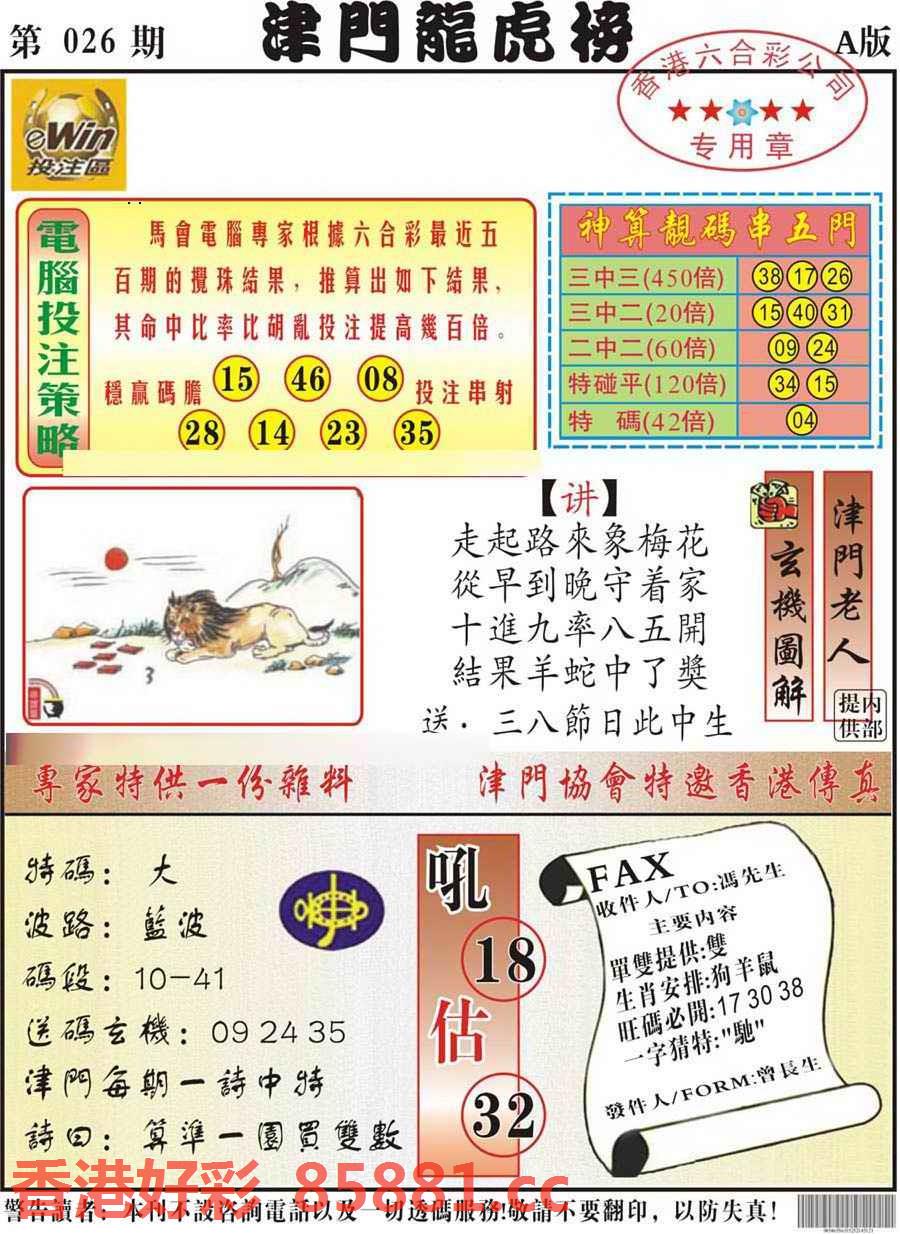 第 026 期
津門龍虎榜
A版
香港六合彩公司
专用章
eWin
投注區
電腦投注策略
馬會電腦專家根據六合彩最近五
百期的攪珠結果，推算出如下結果，
其命中比率比胡亂投注提高幾百倍。
穩贏碼膽 15 46 08 投注串射
28 14 23 35
神算靚碼串五門
三中三(450倍) 38 17 26
三中二(20倍) 15 40 31
二中二(60倍) 09 24
特碰平(120倍) 34 15
特 碼(42倍) 04
3
【讲】
走起路來象梅花
從早到晚守着家
十進九率八五開
結果羊蛇中了獎
送．三八節日此中生
玄機圖解
津門老人
提供
内部
專家特供一份雜料
津門協會特邀香港傳真
特碼：大
波路：藍波
碼段：10-41
送碼玄機：09 24 35
津門每期一詩中特
詩曰：算準一園買雙數
吼
18
估
32
FAX
收件人/TO:馮先生
主要内容
單雙提供:雙
生肖安排:狗羊鼠
旺碼必開:17 30 38
一字猜特:"馳"
發件人/FORM:曾長生
香港好彩 85881.cc
警告讀者：本刊不設咨詢電話以及一切透碼服務!敬請不要翻印，以防失真!